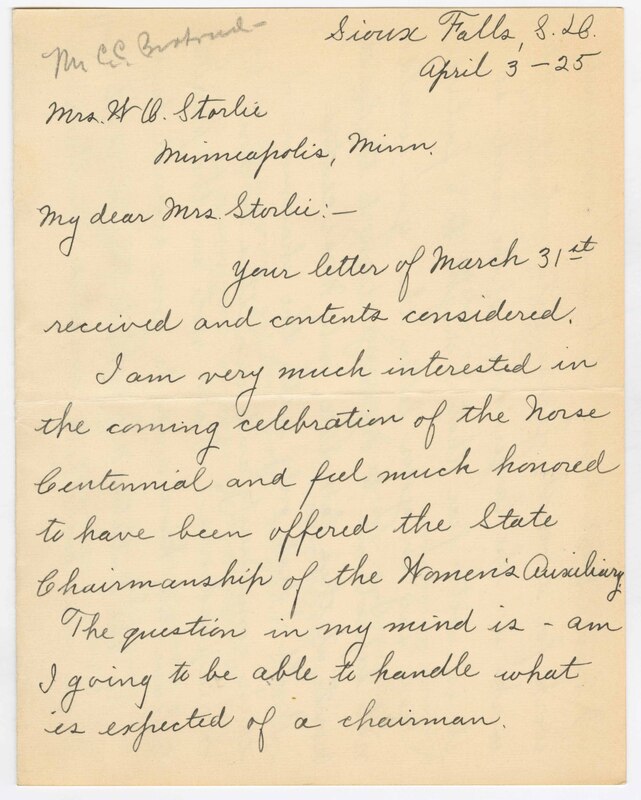 Sioux Falls, S. D.
April 3 - 25
Mrs. W O. Storlie
Minneapolis, Minn.
My dear Mrs. Storlie:-
Your letter of March 31st
received and contents considered.
I am very much interested in
the coming celebration of the Norse
Centennial and feel much honored
to have been offered the State
Chairmanship of the Women's Auxiliary.
The question in my mind is - am
I going to be able to handle what
is expected of a chairman.